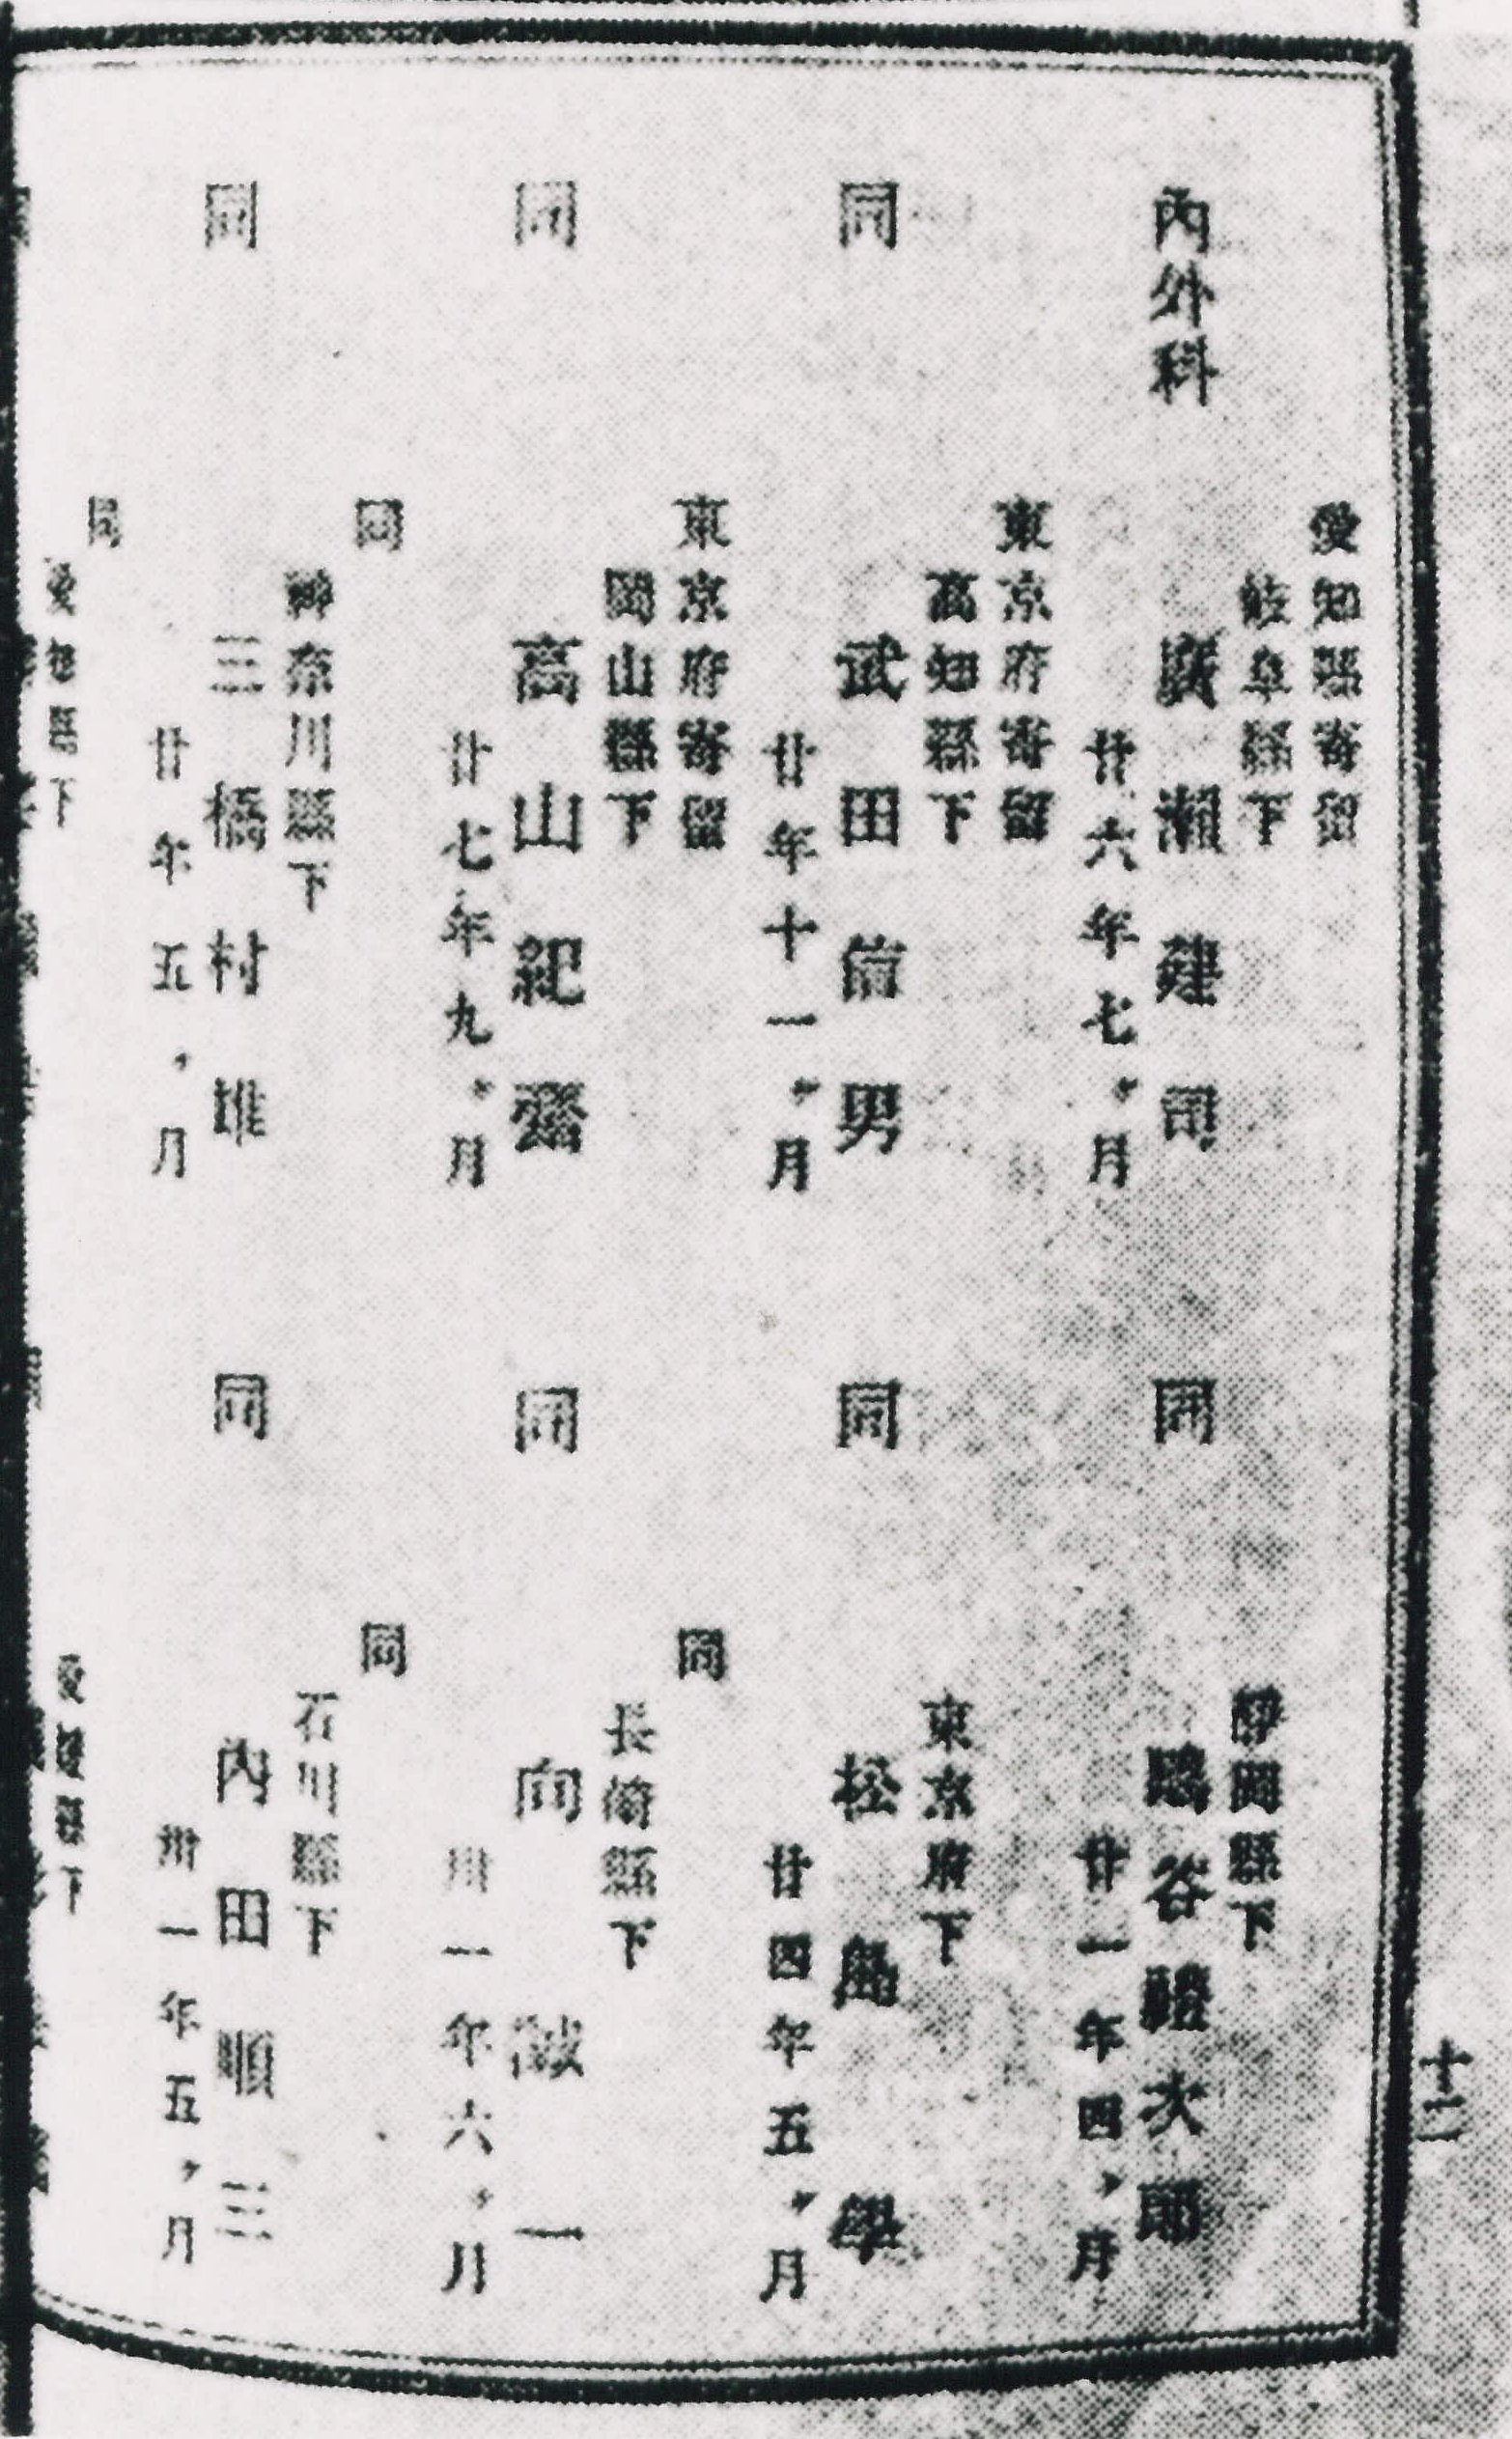 十二
內外科
愛知縣寄留
岐阜縣下
廣瀨建司
廿六年七ヶ月
同
東京府寄留
高知縣下
武田信男
廿年十一ヶ月
同
東京府寄留
岡山縣下
高山紀齋
廿七年九ヶ月
同
同
神奈川縣下
三橋村雄
廿年五ヶ月
同
愛知縣下
同
靜岡縣下
鵰谷禮次郎
廿一年四ヶ月
同
東京府下
松島學
廿四年五ヶ月
同
同
長崎縣下
向一
卅一年六ヶ月
同
同
石川縣下
內田順三
卅一年五ヶ月
愛媛縣下